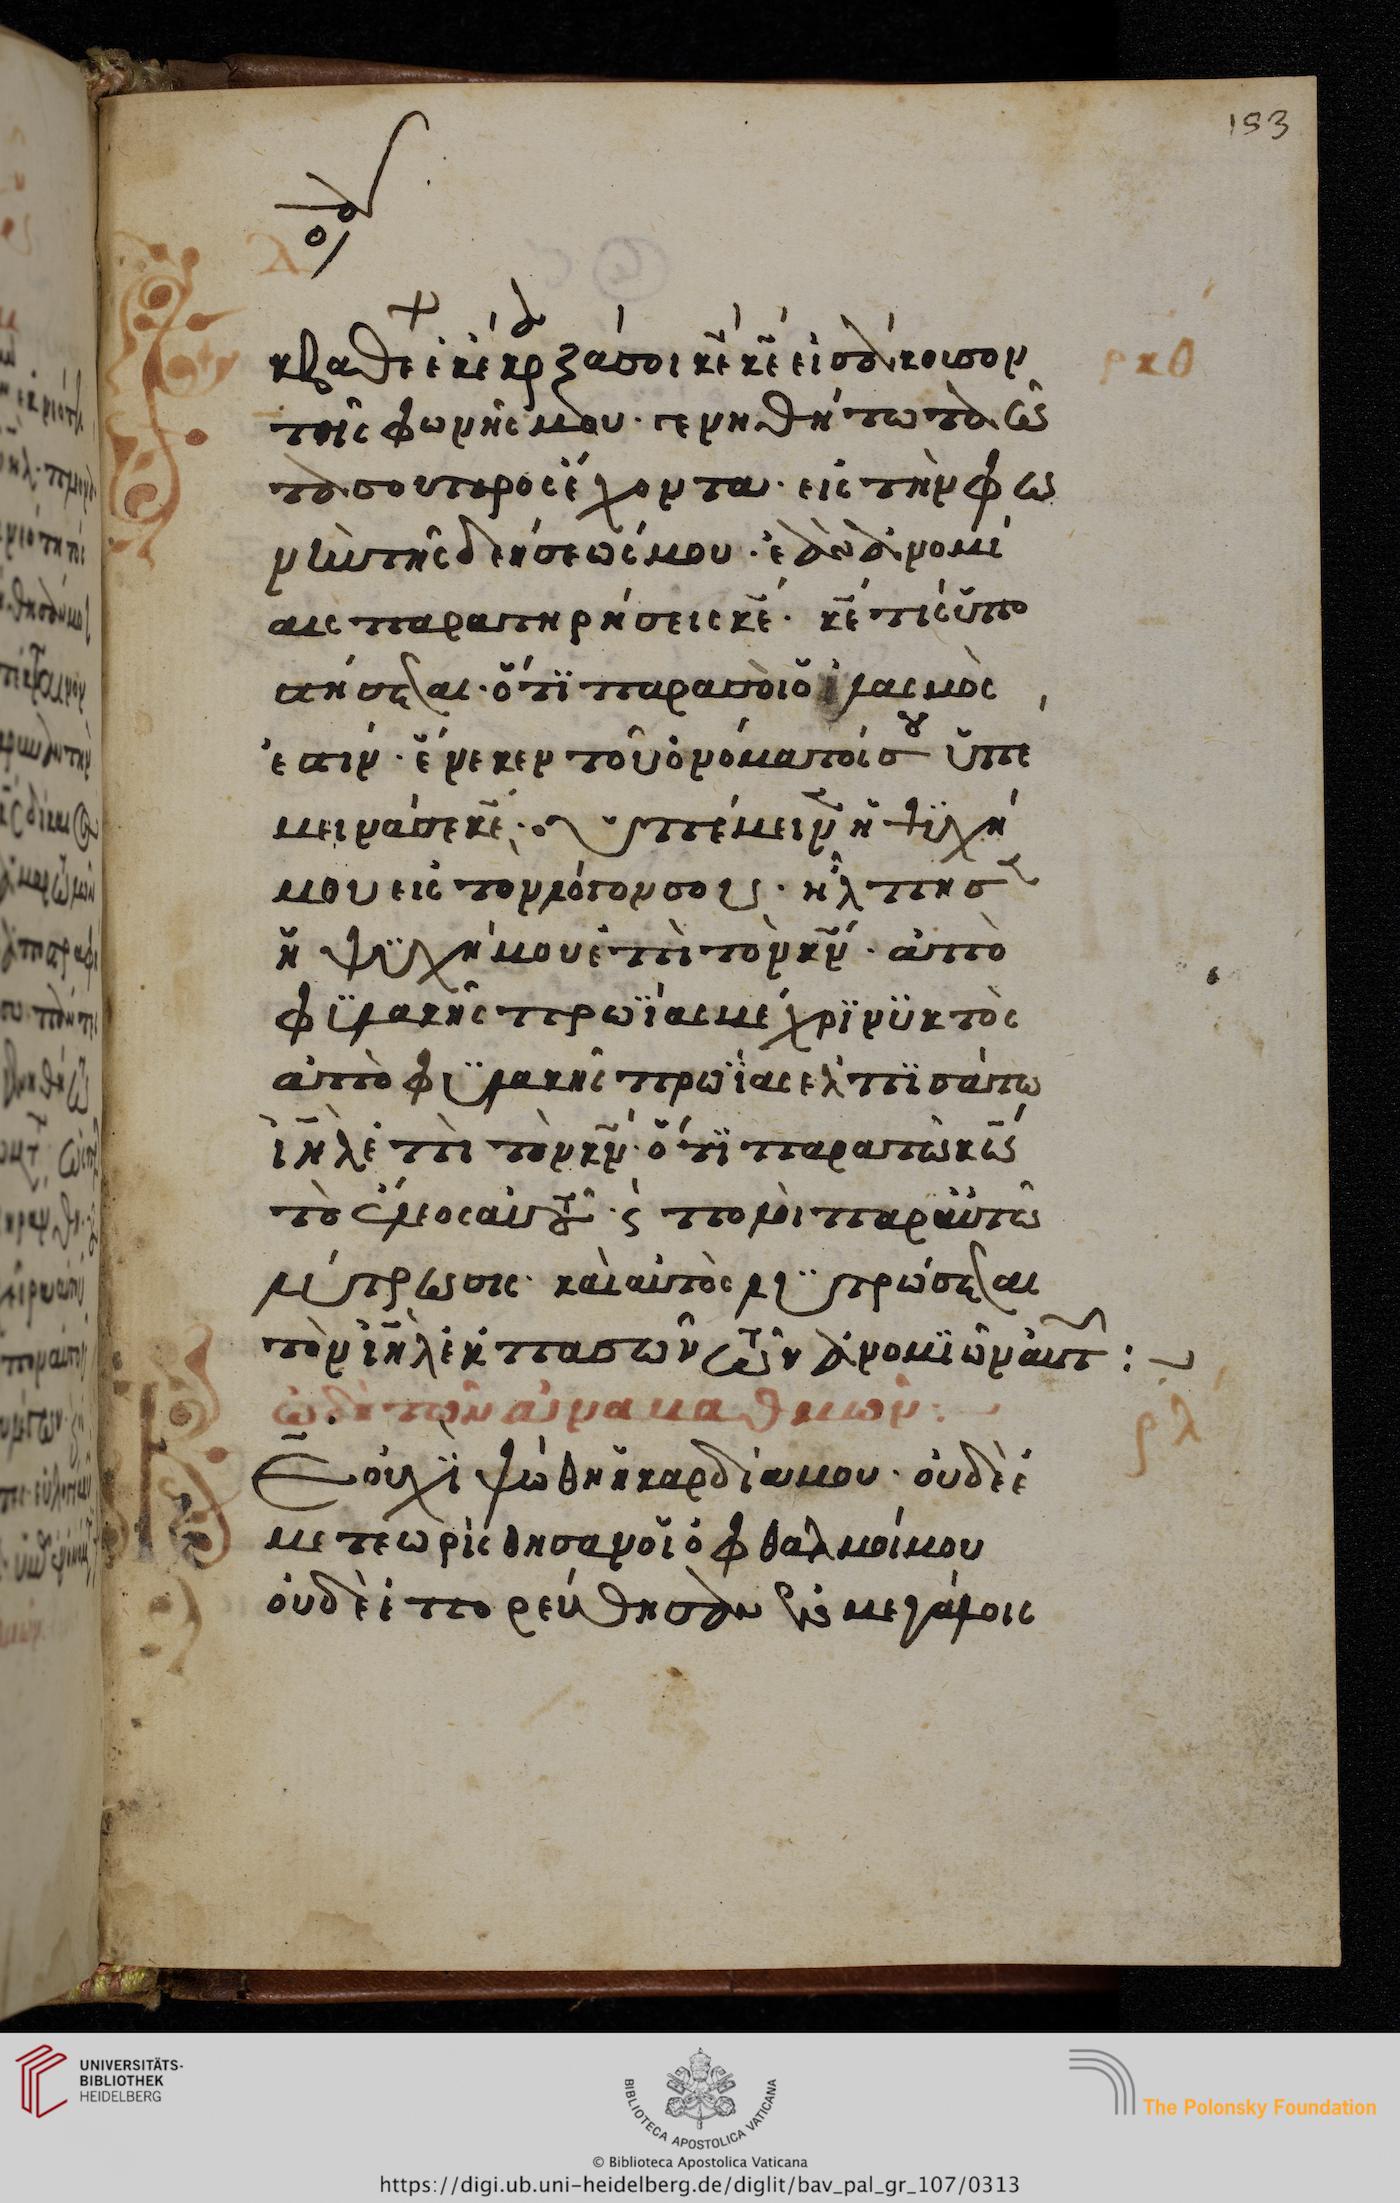 193
κβαθέ ἐκέκραξά σοι κε κε εἰσάκουσον
ρκθ
τῆς φωνῆς μου· γενηθήτω τὰ ὦ
τά σου προσέχοντα· εἰς τὴν φω
νὴν τῆς δεήσεώς μου· ἐὰν ἀνομί
αις παρατηρήσεις κε· κε τίς ὑπο
στήσεται· ὅτι παρὰ σοὶ ὁ ἱλασμὸς
ἐστιν· ἕνεκεν τοῦ ὀνόματός σου ὑπέ
μεινά σε κε· ὑπέμεινεν ἡ ψυχή
μου εἰς τὸν λόγον σου· ἤλπησεν
ἡ ψυχή μου ἐπὶ τὸν κν· ἀπὸ
φυλακῆς πρωΐας μέχρι νυκτὸς
ἀπὸ φυλακῆς πρωΐας ἐλπισάτω
ιηλ ἐπὶ τὸν κν· ὅτι παρὰ τῶ κω
τὸ ἔλεος αὐτοῦ· πολὺ παρ' αὐτῶ
λύτρωσις· καὶ αὐτὸς λυτρώσεται
τὸν ιηλ ἐκ πασῶν τῶν ἀνομιῶν αὐτοῦ:
ὠδὴ τῶν ἀναβαθμῶν:
ρλ
Κε οὐχ ὑψώθη ἡ καρδία μου· οὐδὲ ἐ
μετεωρίσθησαν οἱ ὀφθαλμοί μου
οὐδὲ ἐπορεύθην ἐν μεγάλοις
UNIVERSITÄTS-
BIBLIOTHEK
HEIDELBERG
BIBLIOTECA APOSTOLICA VATICANA
The Polonsky Foundation
© Biblioteca Apostolica Vaticana
https://digi.ub.uni-heidelberg.de/diglit/bav_pal_gr_107/0313